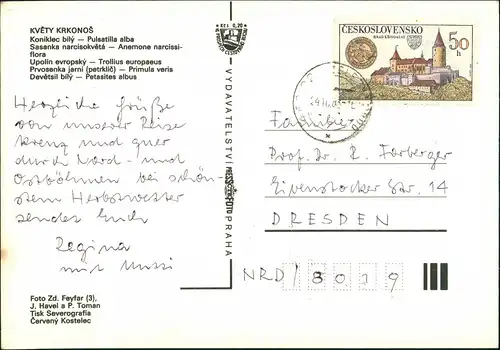 KVĚTY KRKONOŠ
Koniklec bílý — Pulsatilla alba
Sasanka narcisokvětá — Anemone narcissi-
flora
Upolín evropský — Trollius europaeus
Prvosenka jarní (petrklíč) — Primula veris
Devětsil bílý — Petasites albus
Herzliche Grüße
von unserer Reise
kreuz und quer
durch Nord- und
Ostböhmen bei schön-
stem Herbstwetter
sendet Euch
Regina
mit Mutti
Foto Zd. Feyfar (3),
J. Havel a P. Toman
Tisk Severografia
Červený Kostelec
Kčs 0,20
VYDAVATELSTVÍ PRESSFOTO PRAHA
ČESKOSLOVENSKO
HRAD KŘIVOKLÁT
50
h
Familie
Prof. Dr. R. Farberger
Eibenstocker Str. 14
DRESDEN
NRD / 8019